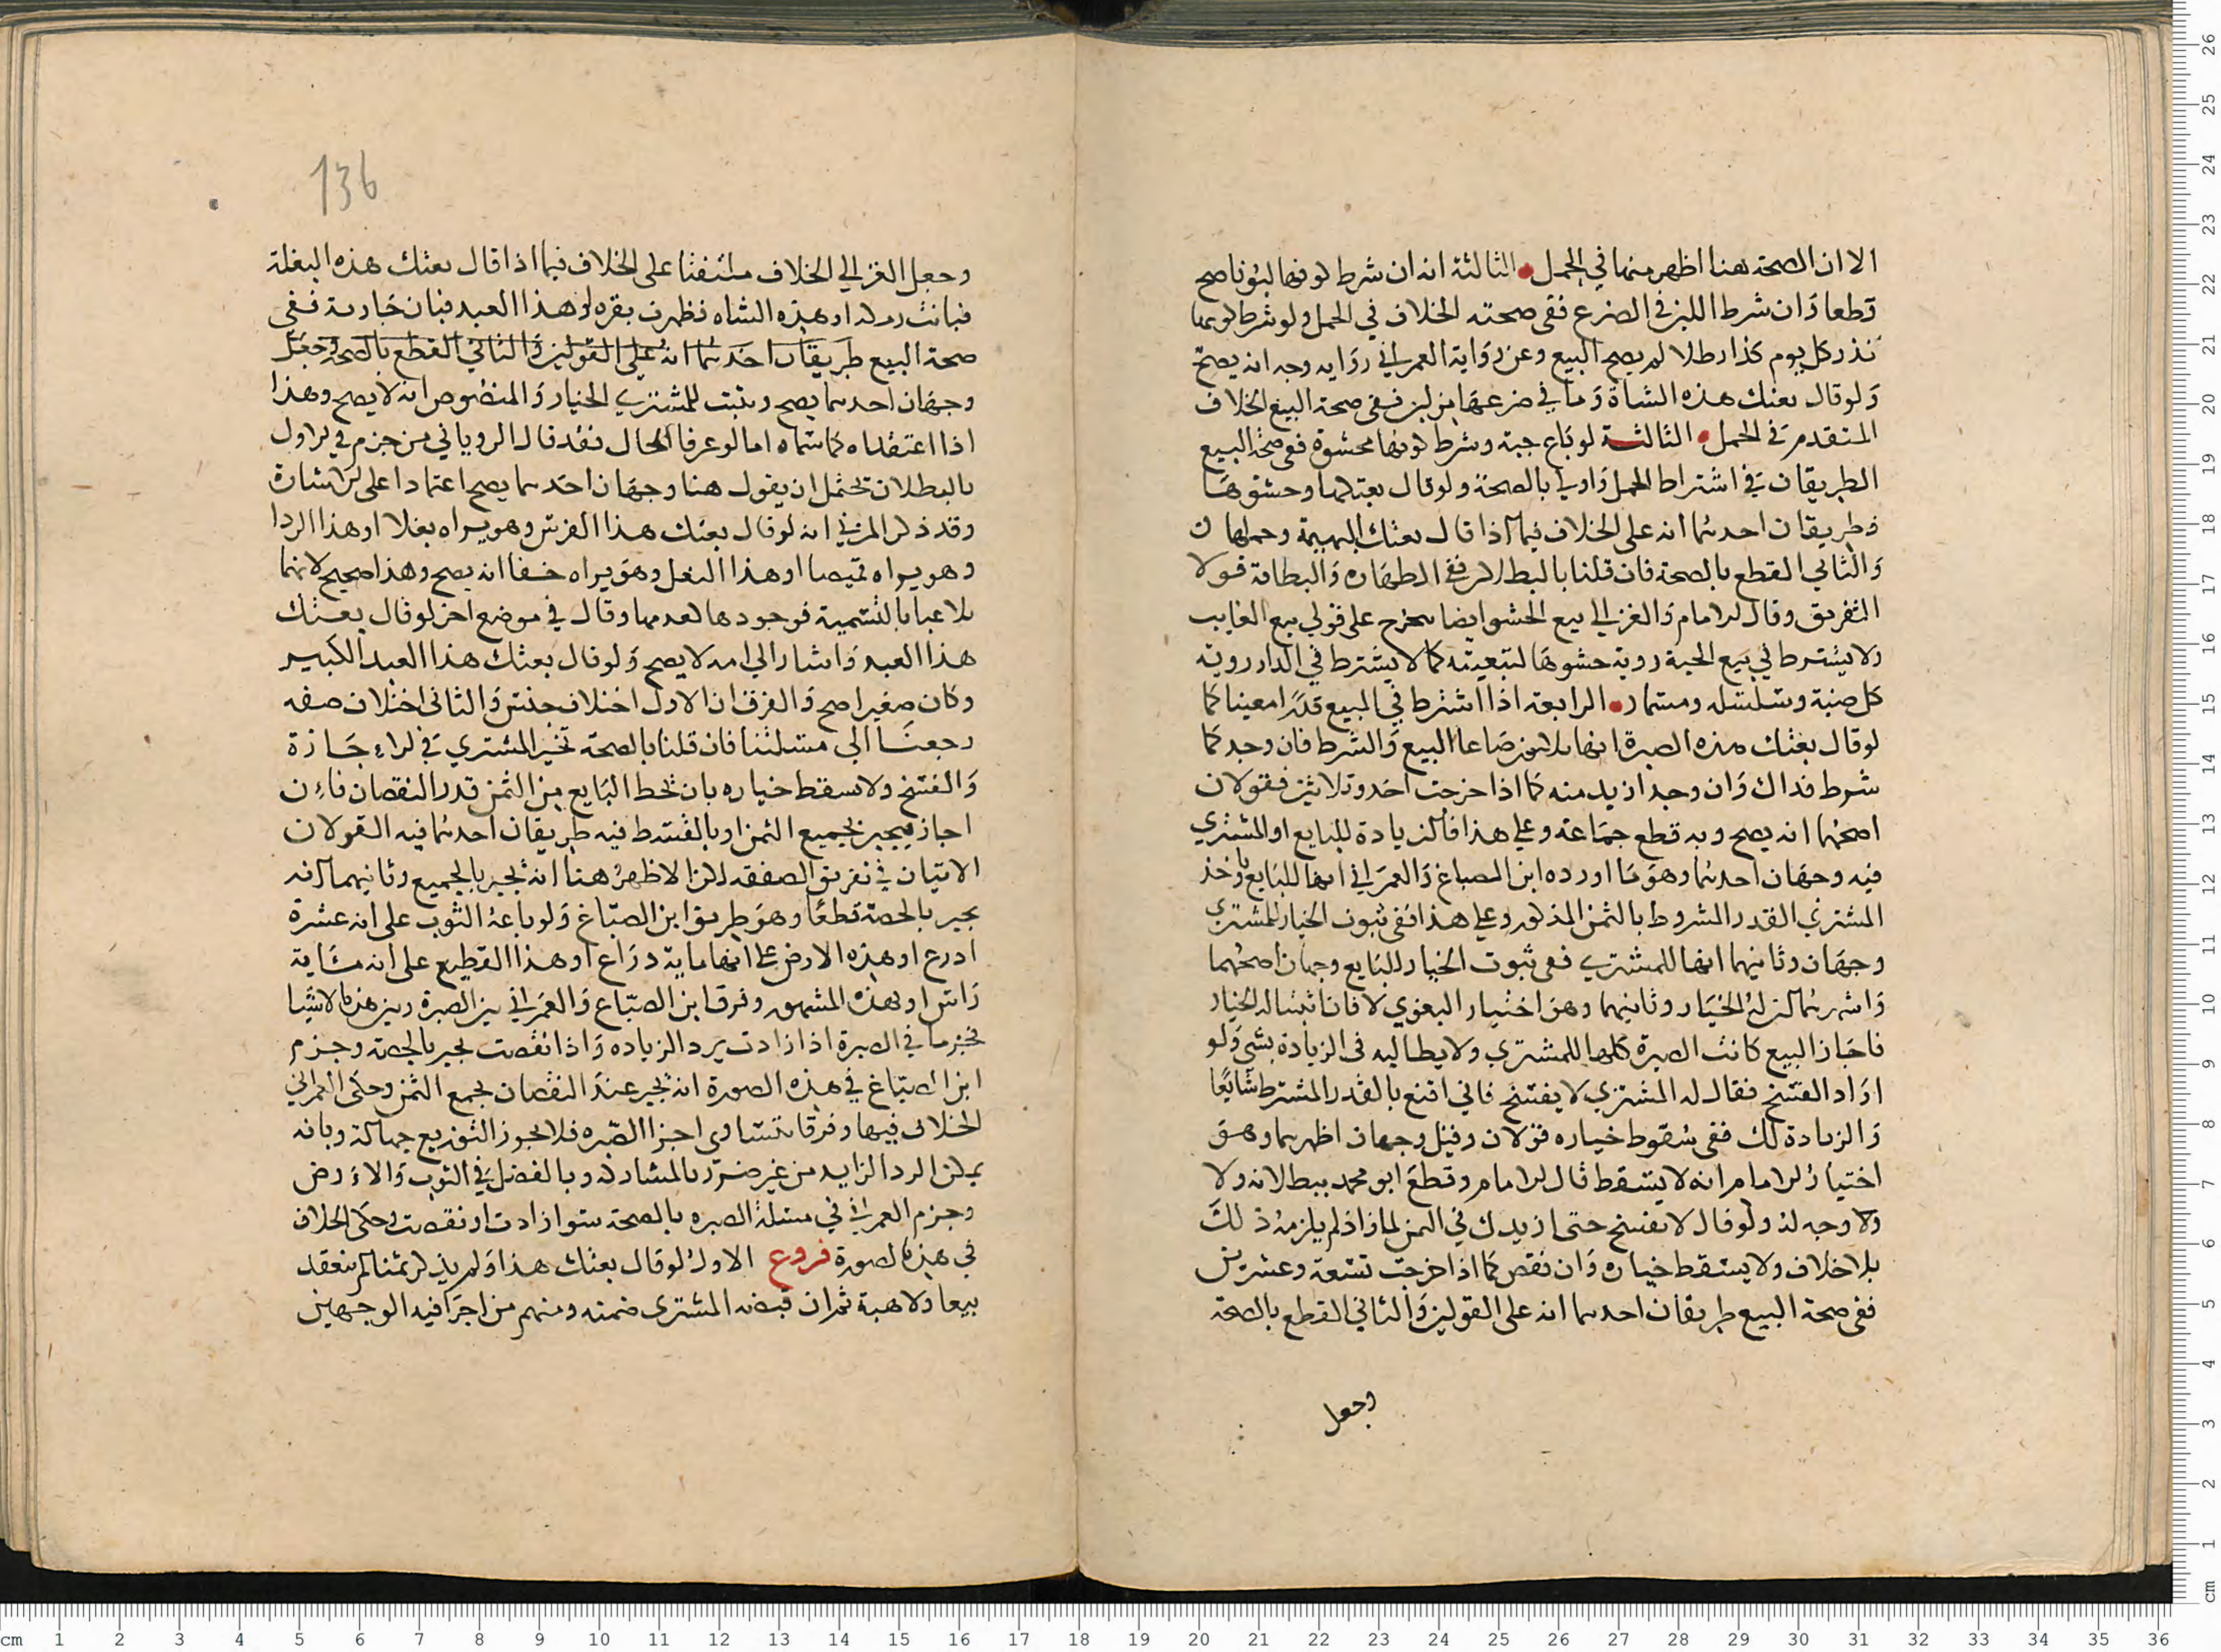 الا ان الصحة هنا اظهر منها في الحمل الثالثة انه ان شرط كونها لبونا صح
قطعا وان شرط اللبن في الضرع ففي صحته الخلاف في الحمل ولو شرط كونها
تدر كل يوم كذا رطلا لم يصح البيع وعن رواية العمراني رواية وجه انه يصح
ولو قال بعتك هذه الشاة وما في ضرعها من لبن ففي صحة البيع الخلاف
المتقدم في الحمل الثالثة لو باع جبة وشرط كونها محشوة ففي صحة البيع
الطريقان في اشتراط الحمل واولى بالصحة ولو قال بعتكها وحشوها
فطريقان احدهما انه على الخلاف فيما اذا قال بعتك البهيمة وحملها
والثاني القطع بالصحة فان قلنا بالبطلان ففي الطهارة والبطانة قولا
التفريق وقال الامام والغزالي بيع الحشو ايضا يخرج على قولي بيع الغايب
ولا يشترط في بيع الجبة روية حشوها لتبعيته كما لا يشترط في الدار روية
كل ضبة وسلسله ومسمار الرابعة اذا اشترط في المبيع قدرا معينا كما
لو قال بعتك هذه الصبرة انها ثلاثون صاعا البيع والشرط فان وجد كما
شرط فذاك وان وجد ازيد منه كما اذا خرجت احد وثلاثين فقولان
اصحهما انه يصح وبه قطع جماعة وعلى هذا فالزيادة للبايع او المشتري
فيه وجهان احدهما وهو ما اورده ابن الصباغ والعمراني انها للبايع ياخذ
المشتري القدر المشروط بالثمن المذكور وعلى هذا ففي ثبوت الخيار للمشتري
وجهان وثانيهما انها للمشتري ففي ثبوت الخيار للبايع وجهان اصحهما
واشهرهما ان له الخيار وثانيهما وهو اختيار البغوي لا فان اثبتنا له الخيار
فاجاز البيع كانت الصبرة كلها للمشتري ولا يطالبه في الزيادة بشي ولو
اراد الفسخ فقال له المشتري لا يفسخ فاني اقنع بالقدر المشترط شايعا
والزيادة لك ففي سقوط خياره قولان وقيل وجهان اظهرهما وهو
اختيار الامام انه لا يسقط قال الامام وقطع ابو محمد ببطلانه ولا
ولا وجه له ولو قال لا تفسخ حتى ازيدك في الثمن لما زاد لم يلزمه ذلك
بلا خلاف ولا يسقط خياره وان نقص كما اذا خرجت تسعة وعشرين
ففي صحة البيع طريقان احدهما انه على القولين والثاني القطع بالصحة
وجعل
136
وجعل الغزالي الخلاف ملتفتا على الخلاف فيما اذا قال بعتك هذه البغلة
فبانت او هذه الشاه فظهرت بقره او هذا العبد فبان جارية ففي
صحة البيع طريقان احدهما انه على القولين والثاني القطع بالصحة وجعل
وجهان احدهما يصح ويثبت للمشتري الخيار والمنصوص انه لا يصح وهذا
اذا اعتقداه كما سماه اما لو عرفا الحال فقد قال الروياني من جزم في الاول
بالبطلان يحتمل ان يقول هنا وجهان احدهما يصح اعتمادا على الاشارة
وقد ذكر المزني انه لو قال بعتك هذا الفرس وهو يراه بغلا او هذا الردا
وهو يراه قميصا او هذا النعل وهو يراه خفا انه يصح وهذا صحيح لانهما
تلاعبا بالتسمية فوجودها كعدمها وقال في موضع اخر لو قال بعتك
هذا العبد واشار الى امة لا يصح ولو قال بعتك هذا العبد الكبير
وكان صغيرا صح والفرق ان الاول اختلاف جنس والثاني اختلاف صفه
رجعنا الى مسئلتنا فان قلنا بالصحة تخير المشتري في الاجازة
والفسخ ولا يسقط خياره بان يحط البايع من الثمن قدر النقصان فان
اجاز فيجيز بجميع الثمن او بالقسط فيه طريقان احدهما فيه القولان
الاتيان في تفريق الصفقه لكن الاظهر هنا انه يجير بالجميع وثانيهما انه
يجير بالحصة قطعا وهو طريق ابن الصباغ ولو باعه الثوب على انه عشرة
اذرع او هذه الارض على انها ماية ذراع او هذا القطيع على انه ماية
راس او بهذه المشهور وفرق ابن الصباغ والعمراني بين الصبرة وبين هذه الاشيا
فجزما في الصبرة اذا زادت يرد الزيادة واذا نقصت يجير بالحصة وجزم
ابن الصباغ في هذه الصورة انه يجير عند النقصان بجمع الثمن وحكى العمراني
الخلاف فيها وفرقا بتساوي اجزا الصبره فلا يجوز التوزيع جهالة وبانه
يمكن الرد الزايد من غير ضرر بالمشاركه وبالفضل في الثوب والارض
وجزم العمراني في مسئلة الصبره بالصحة سوا زادت او نقصت وحكى الخلاف
في هذه الصورة فروع الاول لو قال بعتك هذا ولم يذكر ثمنا لم ينعقد
بيعا ولا هبة ثم ان قبضه المشتري ضمنه ومنهم من اجرا فيه الوجهين